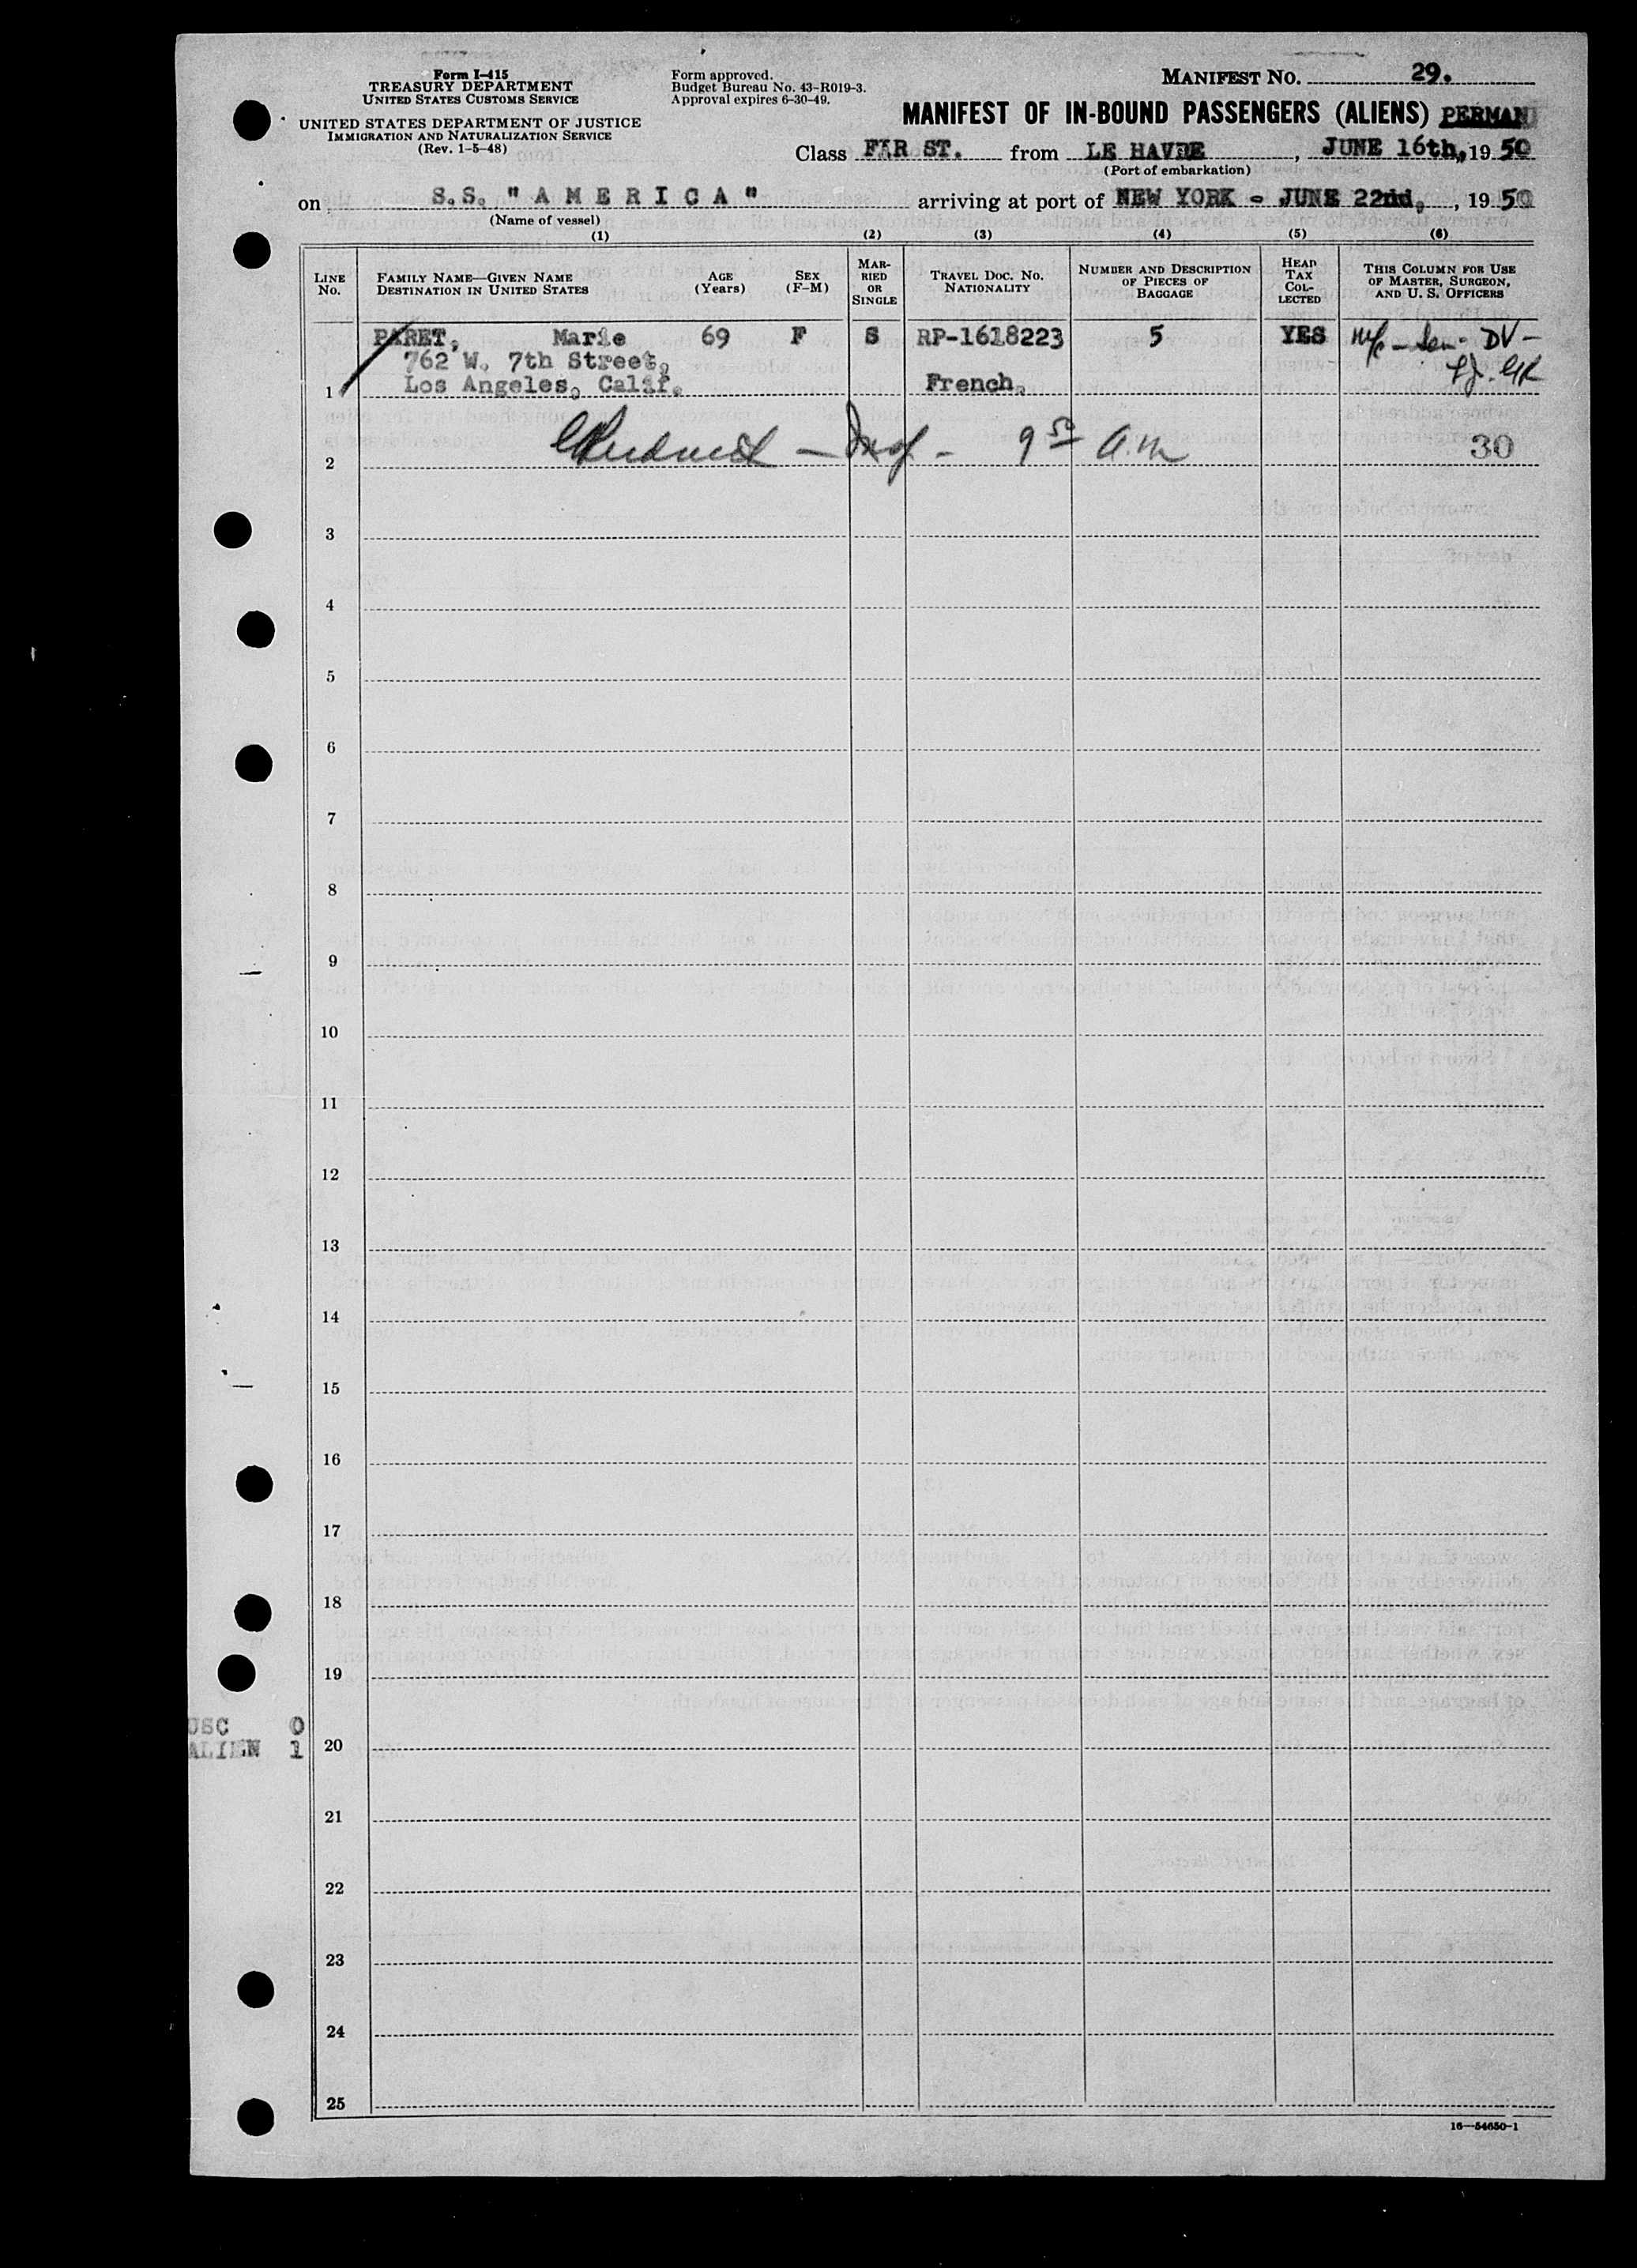 Form I-415
TREASURY DEPARTMENT
UNITED STATES CUSTOMS SERVICE
UNITED STATES DEPARTMENT OF JUSTICE
IMMIGRATION AND NATURALIZATION SERVICE
(Rev. 1-5-48)
Form approved.
Budget Bureau No. 43-R019-3.
Approval expires 6-30-49.
MANIFEST NO. 29.
MANIFEST OF IN-BOUND PASSENGERS (ALIENS) PERMAN
Class FIR ST. from LE HAVRE, JUNE 16th, 19 50
(Port of embarkation)
on S.S. "A M E R I C A" arriving at port of NEW YORK - JUNE 22nd, , 19 50
(Name of vessel)
(1) (2) (3) (4) (5) (6)
LINE No.
FAMILY NAME—GIVEN NAME
DESTINATION IN UNITED STATES
AGE (Years)
SEX (F-M)
MARRIED OR SINGLE
TRAVEL DOC. NO. NATIONALITY
NUMBER AND DESCRIPTION OF PIECES OF BAGGAGE
HEAD TAX COLLECTED
THIS COLUMN FOR USE OF MASTER, SURGEON, AND U. S. OFFICERS
PARET, Marie 69 F S RP-1618223 5 YES DV -
762 W. 7th Street,
1 Los Angeles, Calif. French.
2 9 50 a.m 30
3
4
5
6
7
8
9
10
11
12
13
14
15
16
17
18
19
USC 0
ALIEN 1
20
21
22
23
24
25
16—54650-1